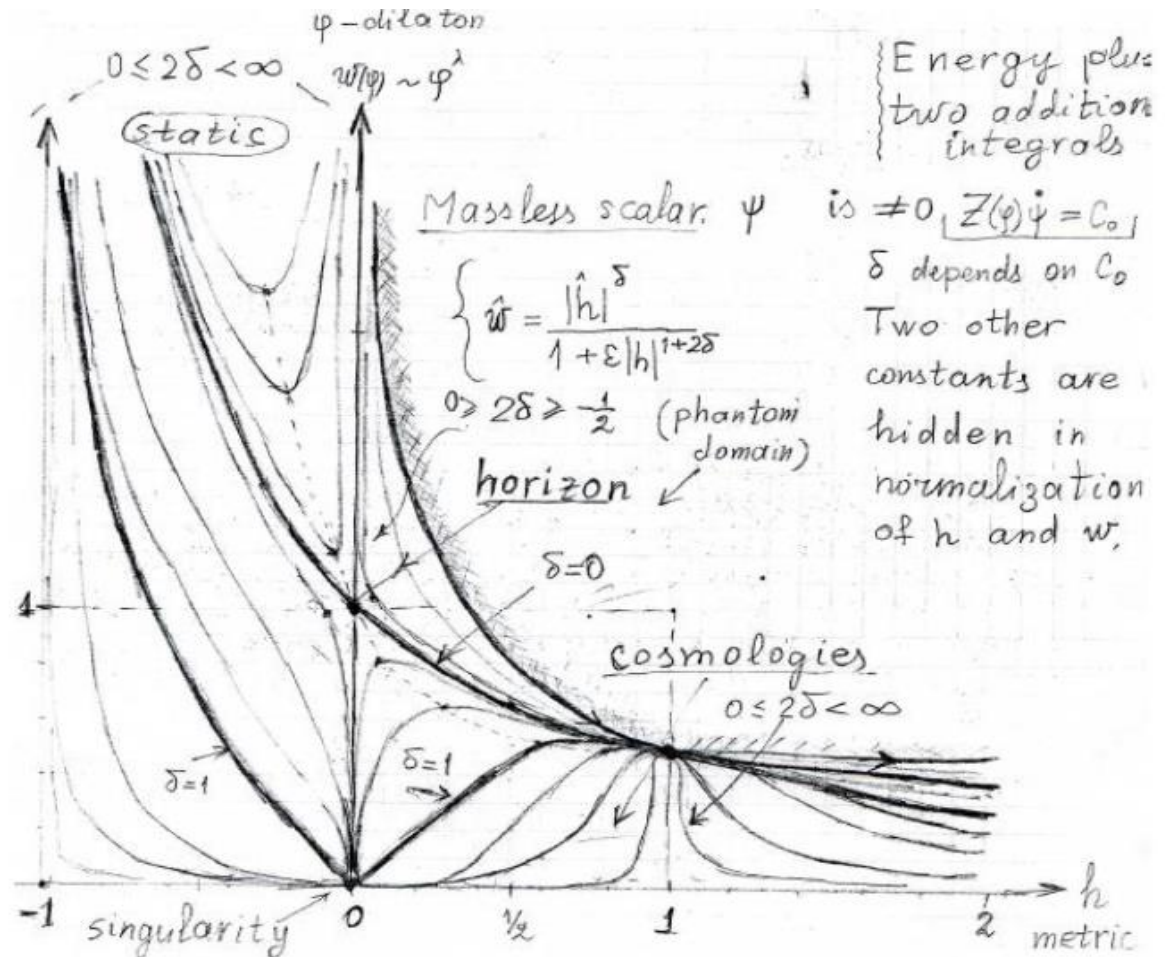 φ-dilaton
0 ≤ 2δ < ∞
w(φ) ~ φ^λ
static
Energy plus
two addition
integrals
Massless scalar. ψ is ≠ 0, Z(φ)ψ̇ = C₀
δ depends on C₀
Two other
constants are
hidden in
normalization
of h and w.
ŵ = |ĥ|^δ / (1 + ε|h|^{1+2δ})
0 ≥ 2δ ≥ -1/2 (phantom
domain)
horizon
δ=0
1
cosmologies
0 ≤ 2δ < ∞
δ=1
δ=1
-1 0 1/2 1 2 h
singularity
metric